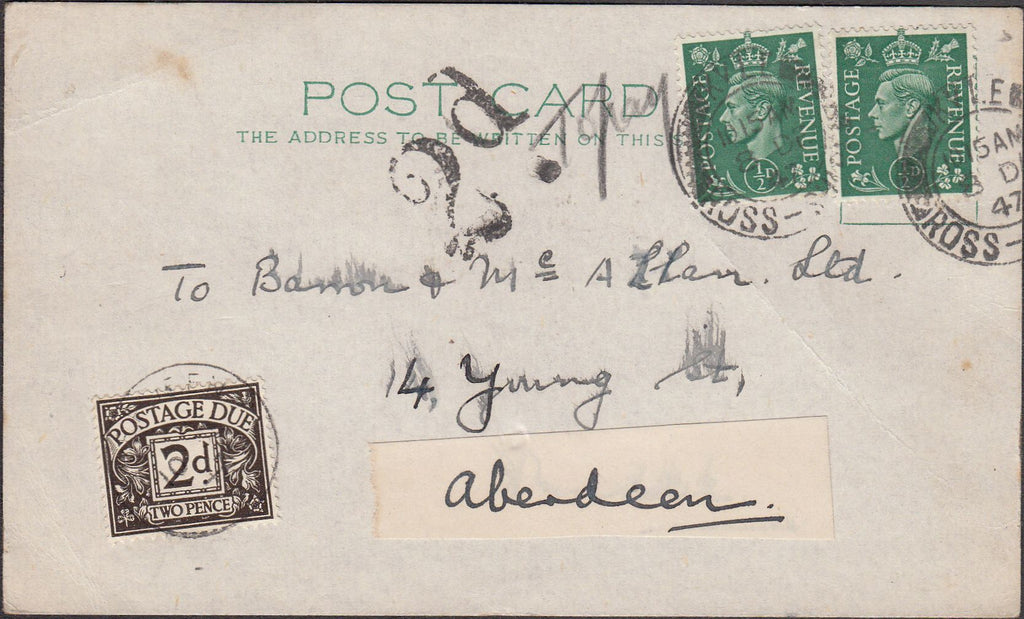 POST CARD
THE ADDRESS TO BE WRITTEN ON THIS S
2d
POSTAGE REVENUE
½D
POSTAGE REVENUE
½D
15 AM
8 D
47
ROSS-
ROSS-
To Barron & Mc Allan. Ltd.
14, Young St,
Aberdeen.
POSTAGE DUE
2d.
TWO PENCE